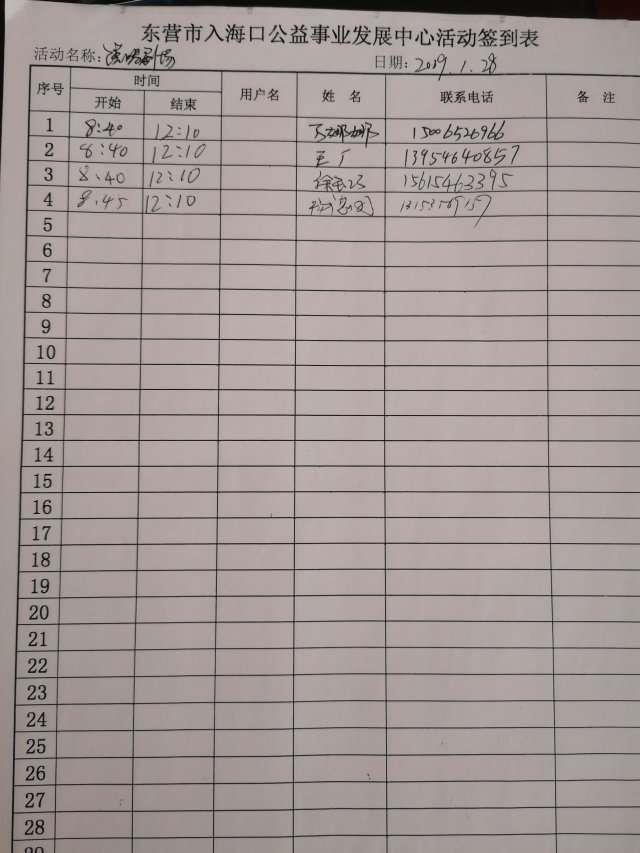 东营市入海口公益事业发展中心活动签到表
活动名称: 日期: 2019.1.28
序号 时间 用户名 姓 名 联系电话 备 注
开始 结束
1 8:40 12:10 15006526966
2 8:40 12:10 王广 13954640857
3 8:40 12:10 15615463395
4 8:45 12:10
5
6
7
8
9
10
11
12
13
14
15
16
17
18
19
20
21
22
23
24
25
26
27
28